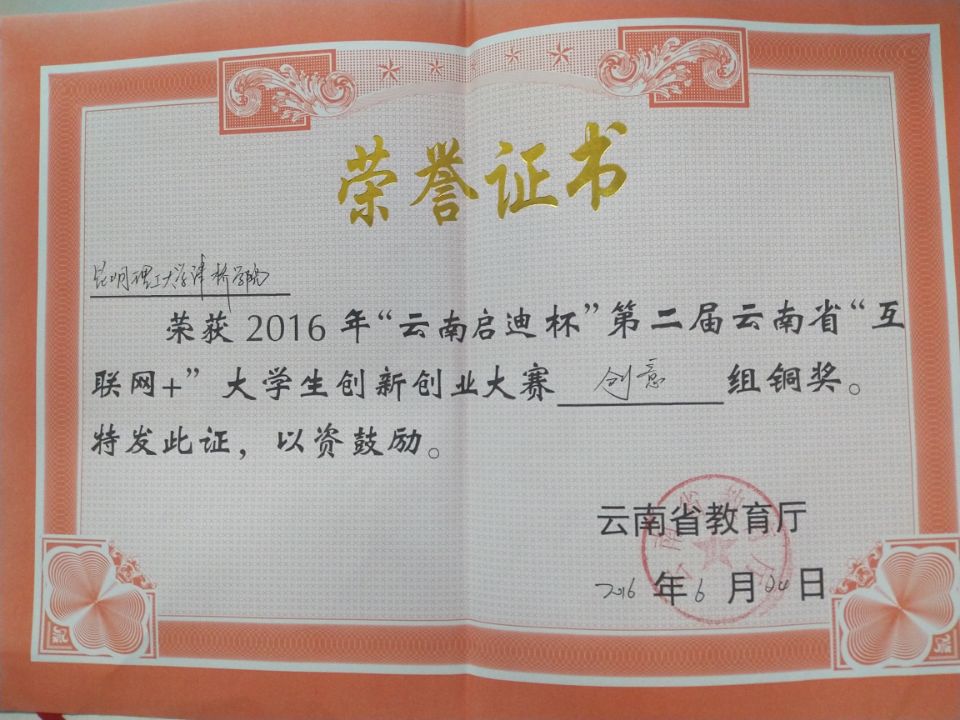 荣誉证书
昆明理工大学津桥学院
荣获2016年“云南启迪杯”第二届云南省“互
联网+”大学生创新创业大赛 创意 组铜奖。
特发此证，以资鼓励。
云南省教育厅
2016 年 6 月 24 日